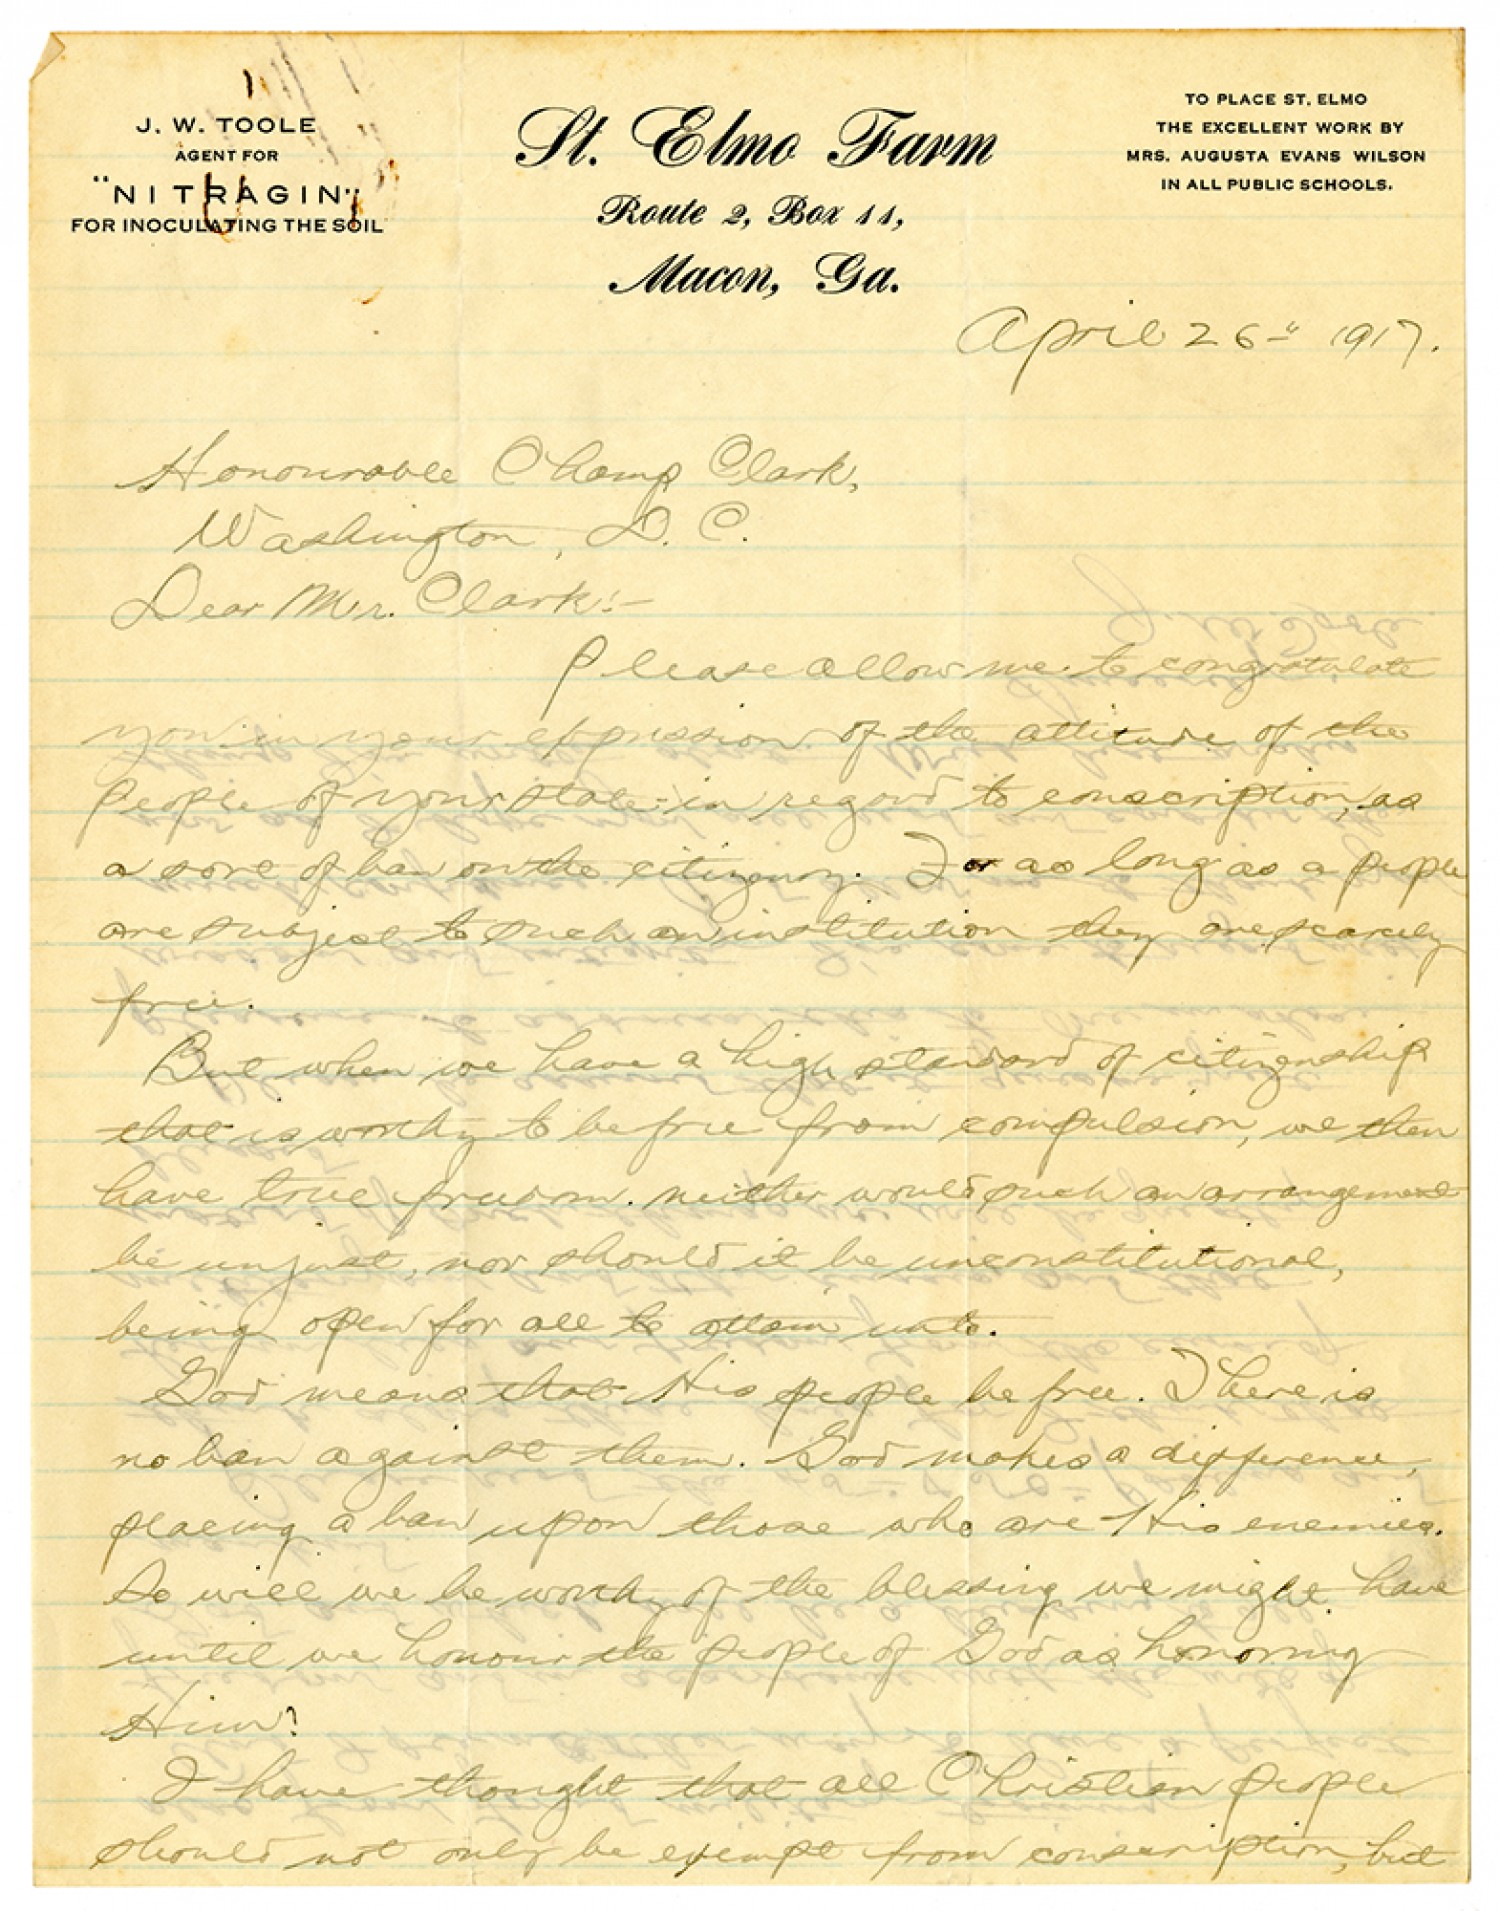 J. W. TOOLE
AGENT FOR
"NITRAGIN"
FOR INOCULATING THE SOIL
St. Elmo Farm
Route 2, Box 11,
Macon, Ga.
TO PLACE ST. ELMO
THE EXCELLENT WORK BY
MRS. AUGUSTA EVANS WILSON
IN ALL PUBLIC SCHOOLS.
April 26th 1917.
Honourable Champ Clark,
Washington, D. C.
Dear Mr. Clark:-
Please allow me to congratulate
you in your expression of the attitude of the
people of your state in regard to conscription, as
a sort of ban on the citizenry. For as long as a people
are subject to such an institution they are scarcely
free.
But when we have a high standard of citizenship
that is worthy to be free from compulsion, we then
have true freedom. neither would such an arrangement
be unjust, nor should it be unconstitutional,
being open for all to attain unto.
God means that His people be free. There is
no ban against them. God makes a difference,
placing a ban upon those who are His enemies.
So will we be worthy of the blessing we might have
until we honour the people of God as honoring
Him?
I have thought that all Christian people
should not only be exempt from conscription, but